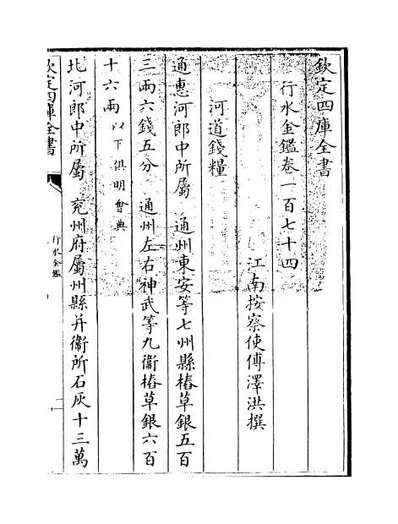 欽定四庫全書
行水金鑑卷一百七十四
江南按察使傅澤洪撰
河道錢糧
通惠河郎中所屬 通州東安等七州縣樁草銀五百
三兩六錢五分 通州左右神武等九衞樁草銀六百
十六兩以下俱明會典
北河郎中所屬 兖州府屬州縣并衞所石灰十三萬
欽定四庫全書
行水金鑑